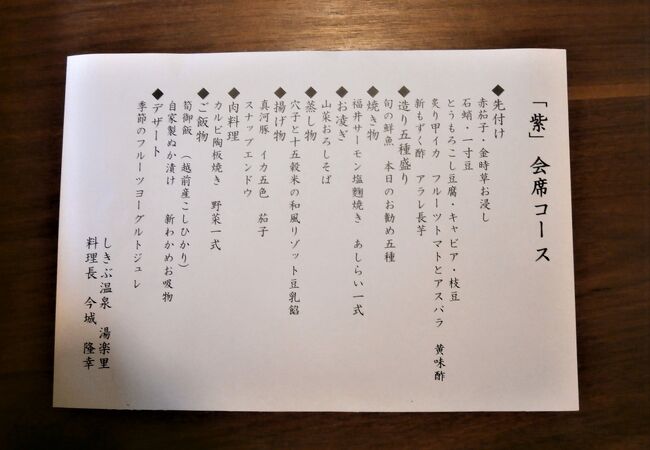 「紫」会席コース
◆先付け
赤茄子・金時草お浸し
石蛸・一寸豆
とうもろこし豆腐・キャビア・枝豆
炙り甲イカ フルーツトマトとアスパラ 黄味酢
新もずく酢 アラレ長芋
◆造り五種盛り
旬の鮮魚 本日のお勧め五種
◆焼き物
福井サーモン塩麴焼き あしらい一式
◆お凌ぎ
山菜おろしそば
◆蒸し物
穴子と十五穀米の和風リゾット豆乳餡
◆揚げ物
真河豚 イカ五色 茄子
スナップエンドウ
◆肉料理
カルビ陶板焼き 野菜一式
◆ご飯物
筍御飯 (越前産こしひかり)
自家製ぬか漬け 新わかめお吸物
◆デザート
季節のフルーツヨーグルトジュレ
しきぶ温泉 湯楽里
料理長 今城 隆幸